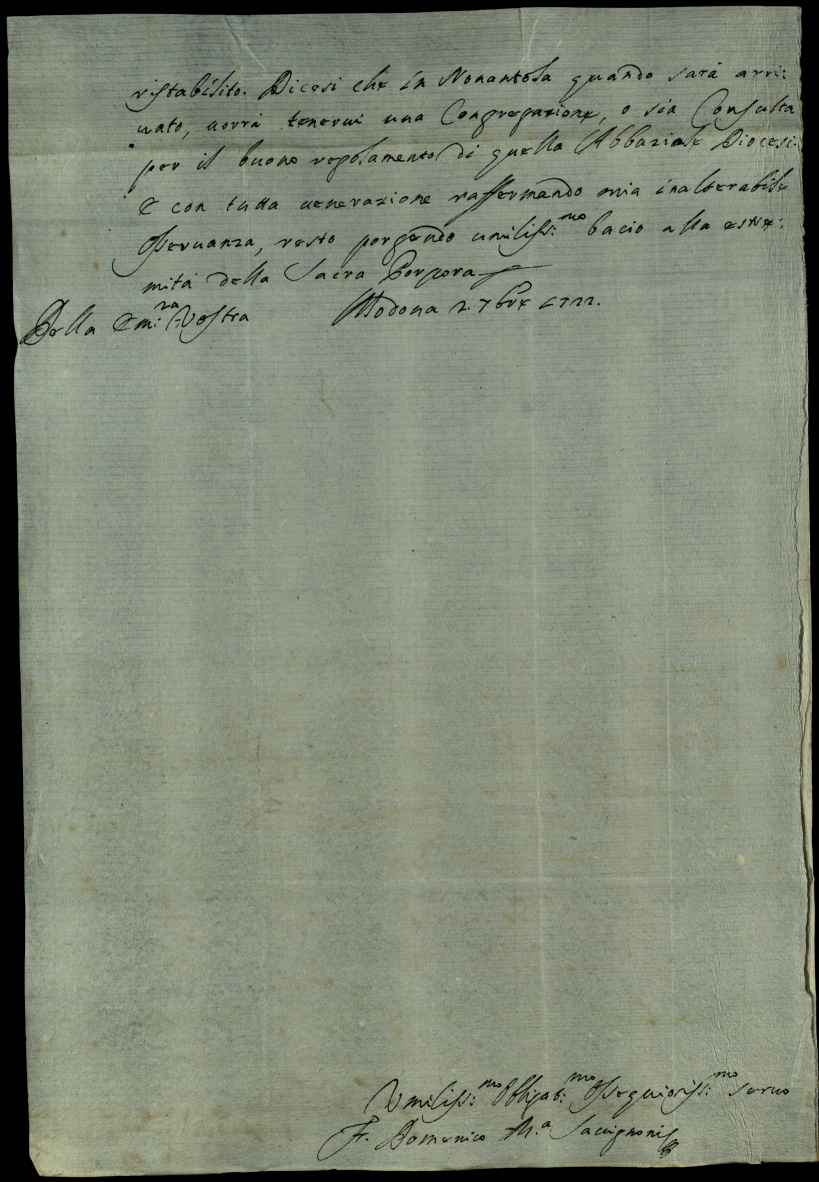 ristabilito. Dicesi che in Nonantola quando sarà arri:
uato, uorrà tenerui una Congregazione, o sia Consulta
per il buono regolamento di quella Abbaziale Diocesi.
E con tutta uenerazione raffermando mia inalterabile
osseruanza, resto porgendo umiliss:mo bacio alla estre:
mità della Sacra Porpora
Della Emi:za Vostra Modona 2. 7bre 1722.
Umiliss:mo Obligat:mo Ossequiosiss:mo seruo
F. Domenico M.a